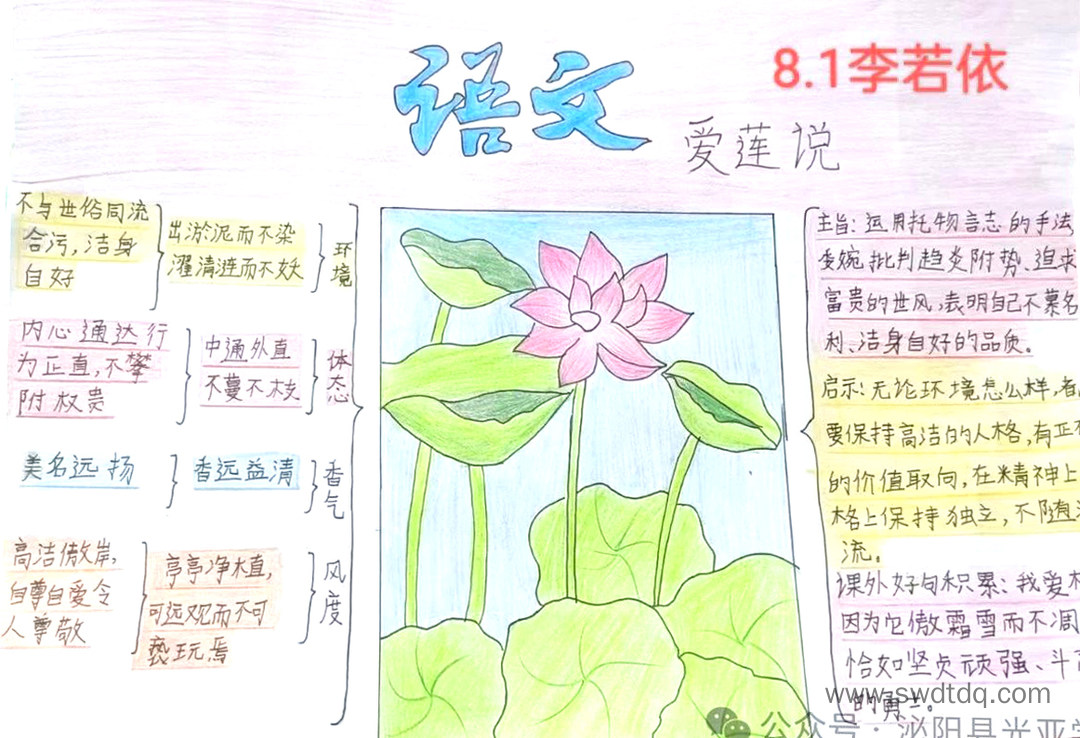 语文
8.1李若依
爱莲说
不与世俗同流
合污,洁身
自好
出淤泥而不染
濯清涟而不妖
环境
内心通达行
为正直,不攀
附权贵
中通外直
不蔓不枝
体态
美名远扬
香远益清
香气
高洁傲岸,
自尊自爱令
人尊敬
亭亭净植,
可远观而不可
亵玩焉
风度
主旨:运用托物言志的手法
委婉批判趋炎附势、追求
富贵的世风,表明自己不慕名
利、洁身自好的品质。
启示:无论环境怎么样,都
要保持高洁的人格,有正
的价值取向,在精神上
格上保持独立,不随
流。
课外好句积累:我爱
因为它傲霜雪而不凋
恰如坚贞顽强、斗
的勇士。
www.swdtdq.com
公众号·泌阳县光亚学